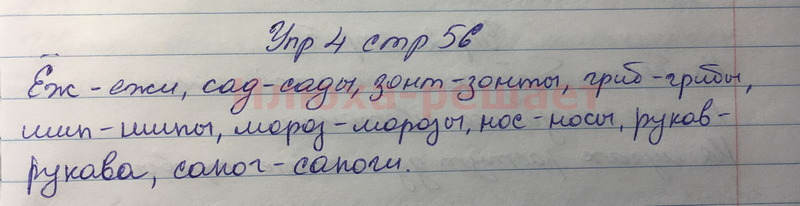 Упр 4 стр 56
Ёж - ежи, сад - сады, зонт - зонты, гриб - грибы,
илюха-решает
шип - шипы, мороз - морозы, нос - носы, рукав -
рукава, сапог - сапоги.